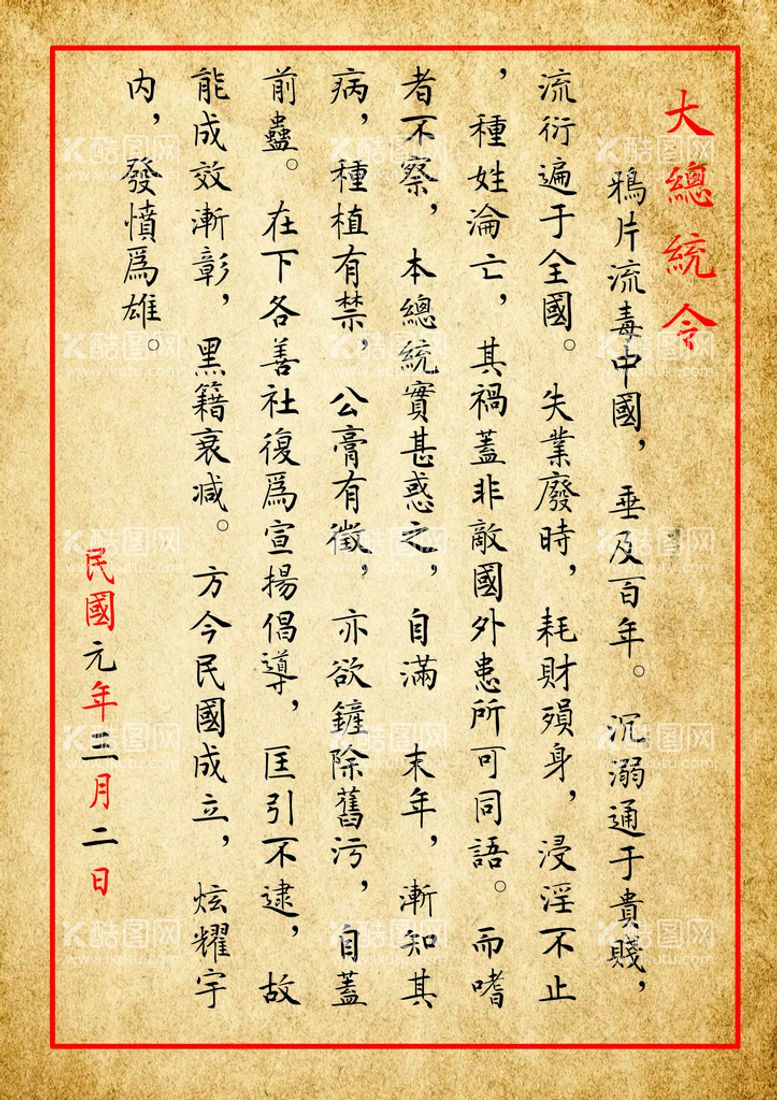 大總統令
鴉片流毒中國，垂及百年。沉溺通于貴賤，
流衍遍于全國。失業廢時，耗財殞身，浸淫不止
，種姓淪亡，其禍蓋非敵國外患所可同語。而嗜
者不察，本總統實甚惑之，自滿 末年，漸知其
病，種植有禁，公膏有徵，亦欲鏟除舊污，自蓋
前蠱。在下各善社復爲宣揚倡導，匡引不逮，故
能成效漸彰，黑籍衰减。方今民國成立，炫耀宇
内，發憤爲雄。
民國元年三月二日